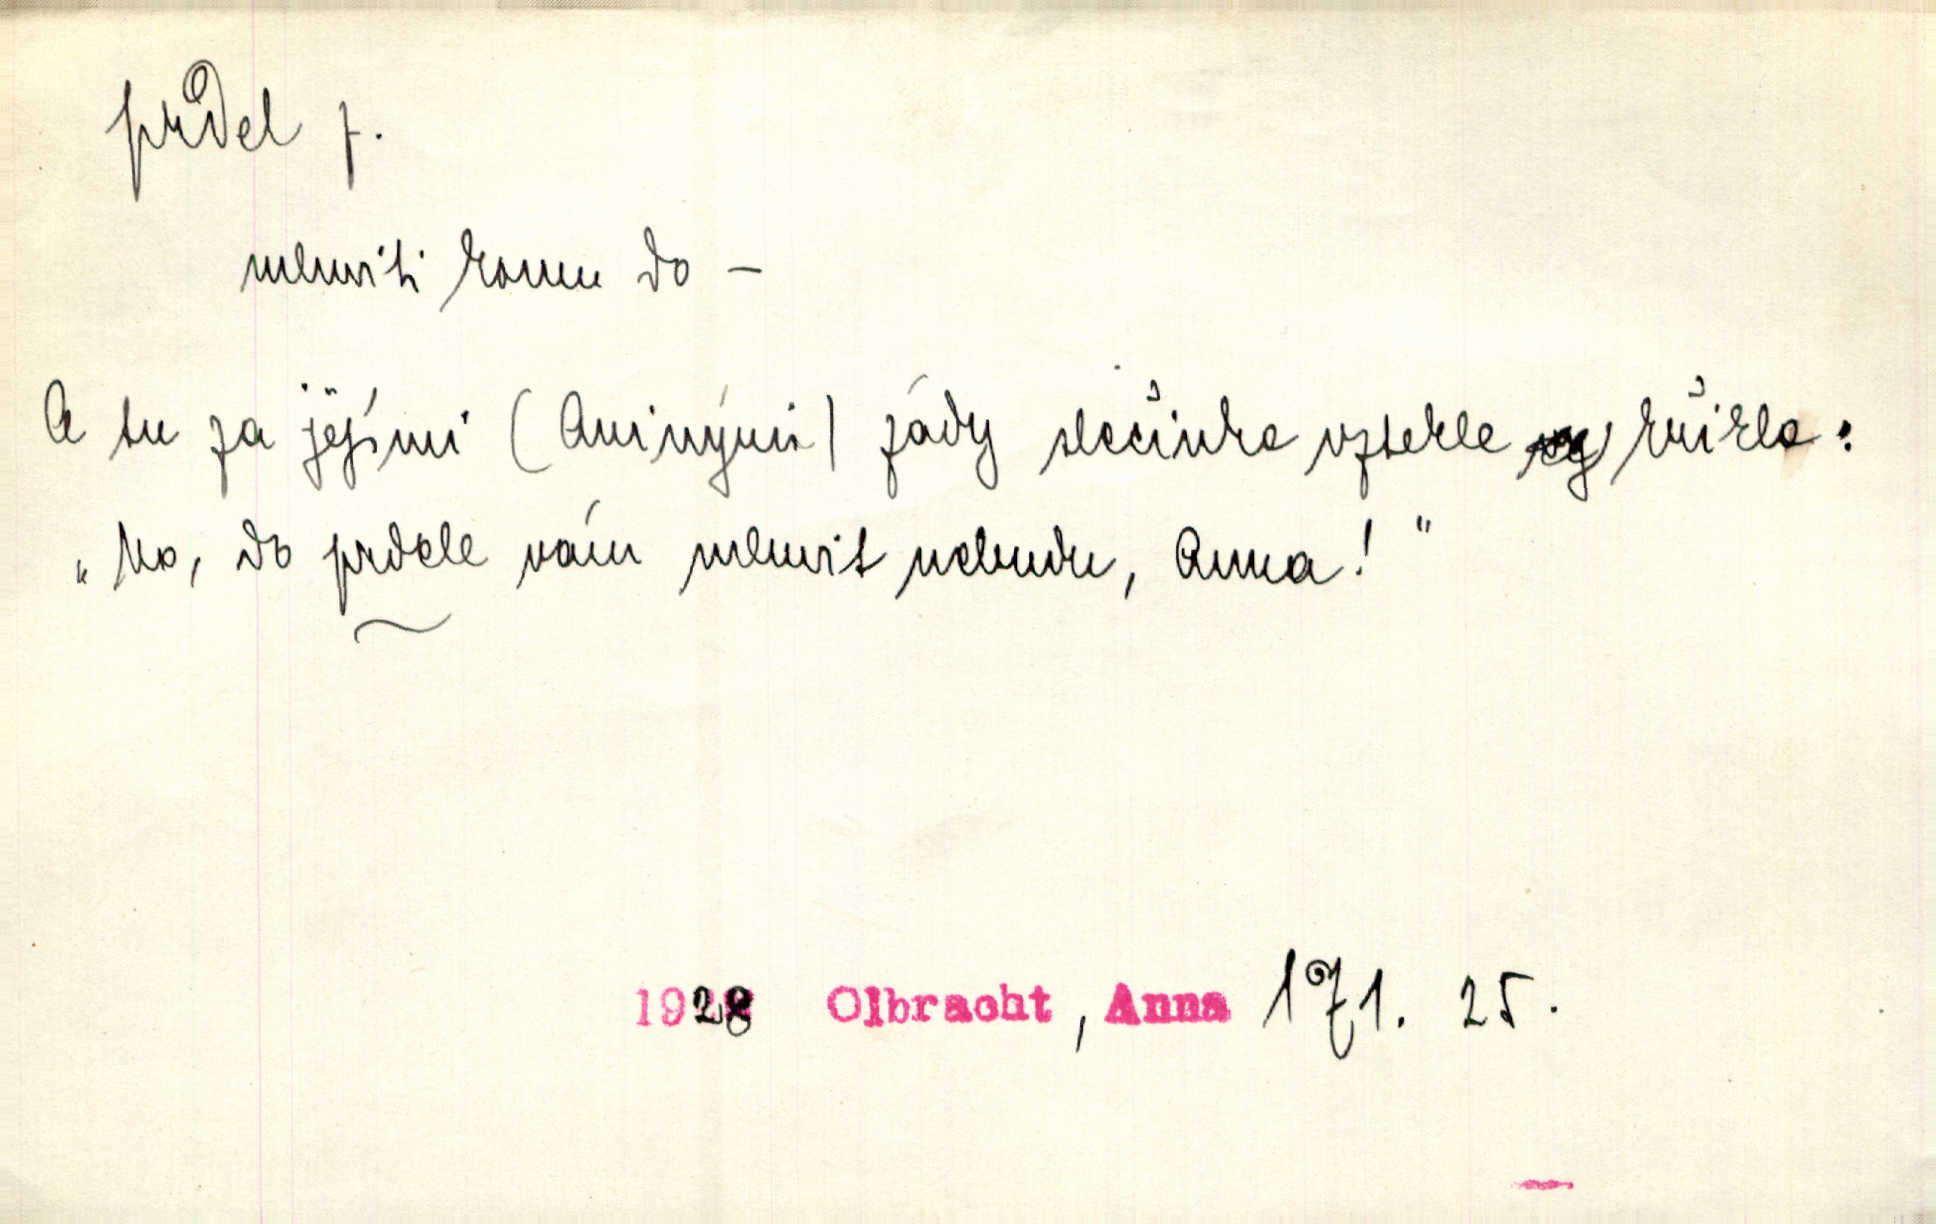 prdel f.
mluviti komu do –
A tu za jejími (Aninými) zády slečinka vztekle kvikla:
„No, do prdele vám mluvit nebudu, Anna!"
1928 Olbracht, Anna 171. 25.